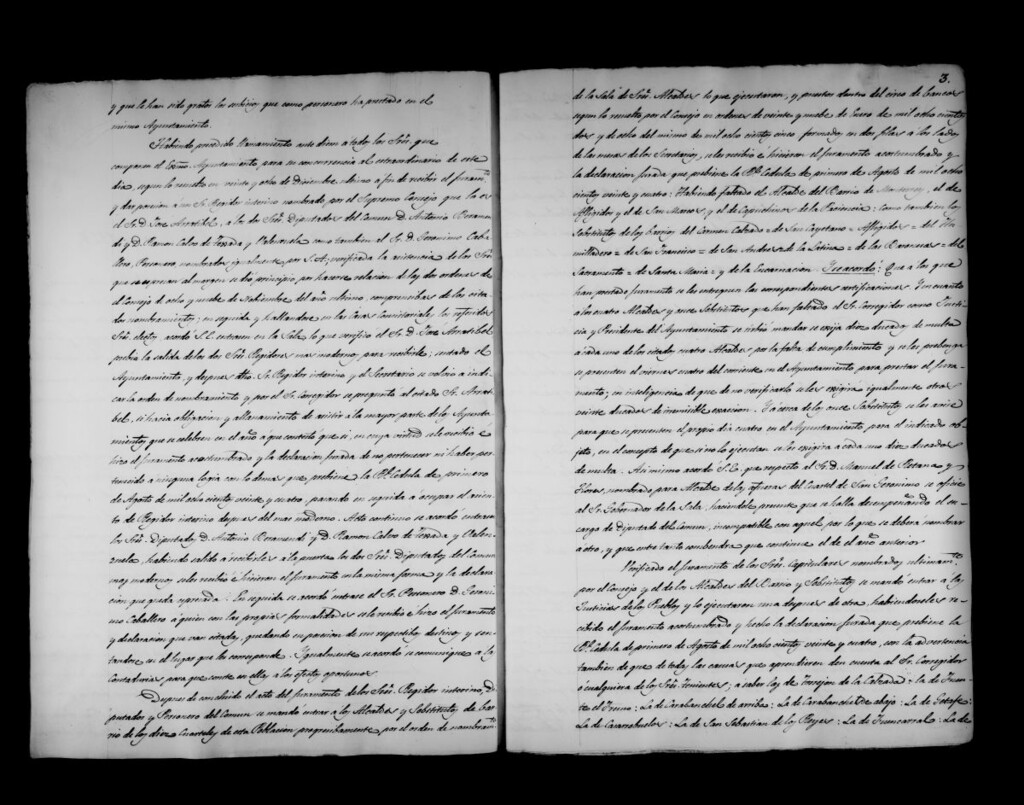 y que le han sido gratos los servicios que como personero ha prestado en el
mismo Ayuntamiento.
Habiendo precedido llamamiento ante diem a todos los Sres. que
componen el Excmo. Ayuntamiento para su concurrencia al extraordinario de este
dia, segun lo resuelto en veinte y ocho de Diciembre ultimo a fin de recibir el juramto.
y dar posesion a un Sr. Regidor interino nombrado por el Supremo Consejo que lo es
el Sr. D. Jose Arratibel, a los Sres. Diputados del Comun D. Antonio
y D. Ramon Calvo de Texada y Valenzuela como tambien al Sr. D. Geronimo Caba
llero, Personero, nombrados igualmente por S. A; verificada la asistencia de los Sres.
que se espresan al margen se dio principio por hacerse relacion de las dos ordenes de
el Consejo de ocho y nueve de Noviembre del año ultimo, comprensibas de los cita
dos nombramientos; en seguida y hallandose en las Casas Consistoriales los referidos
Sres. electos acordó S. E. entrasen en la Sala, lo que verificó el Sr. D. Jose Arratibel
prebia la salida de los dos Sres. Regidores mas modernos para recibirle; sentado el
Ayuntamiento, y despues dho. Sr. Regidor interino, y el Secretario se volvio a indi
car la orden de nombramiento y por el Sr. Corregidor se preguntó al citado Sr. Arrati
bel, si hacia obligacion y allanamiento de asistir a la mayor parte de los Ayunta
mientos que se celebren en el año a que contestó que si; en cuya virtud se le recibio é
hizo el juramento acostumbrado y la declaracion jurada de no pertenecer ni haber per
tenecido a ninguna logia con lo demas que prebiene la Rl. Cedula de primero
de Agosto de mil ocho cientos veinte y cuatro, pasando en seguida a ocupar el asien
to de Regidor interino despues del mas moderno. Acto continuo se acordó entrasen
los Sres. Diputados D. Antonio y D. Ramon Calvo de Texada y Valen
zuela, habiendo salido a recibirles a la puerta los dos Sres. Diputados del Comun
mas modernos se les recibio é hicieron el juramento en la misma forma y la declara
cion que queda espresada. En seguida se acordó entrase el Sr. Personero D. Geroni
mo Caballero á quien con las propias formalidades se le recibio é hizo el juramento
y declaracion que van citados, quedando en posesion de sus respectibos destinos y sen
tandose en el lugar que les corresponde. Igualmente se acordó se comunique a la
Contaduria para que conste en ella y a los efectos oportunos
Despues de concluido el acto del juramento de los Sres. Regidor interino, Di
putados y Personero del Comun se mandó entrar a los Alcaldes y Substitutos de bar
rio de los diez Cuarteles de esta Poblacion progresivamente, por el orden de nombramto.
3.
de la Sala de Sres. Alcaldes lo que ejecutaron, y puestos dentro del circo de bancos
segun lo resuelto por el Consejo en ordenes de veinte y nuebe de Enero de mil ocho cientos
dos y de ocho del mismo de mil ocho cientos cinco formados en dos filas a los lados
de las mesas de los Secretarios, se les recibio é hicieron el juramento acostumbrado y
la declaracion jurada que prebiene la Rl. Cedula de primero de Agosto de mil ocho
cientos veinte y cuatro: Habiendo faltado el Alcalde del Barrio de Monserrat, el de
Afligidos y el de San Marcos, y el de Capuchinos de la Paciencia: como tambien los
Substitutos de los barrios del Carmen Calzado = de San Cayetano = Afligidos = del Hu
milladero = de San Francisco = de San Andres = de la Latina = de las Baronesas = del
Sacramento = de Santa Maria = y de la Encarnacion. Y se acordó: Que a los que
han prestado juramento se les entreguen las correspondientes certificaciones. Y en cuanto
a los cuatro Alcaldes y once Substitutos que han faltado el Sr. Corregidor como Justi
cia y Presidente del Ayuntamiento se sirbió mandar se exija diez ducados de multa
á cada uno de los citados cuatro Alcaldes por la falta de cumplimiento y se les prebenga
se presenten el viernes cuatro del corriente en el Ayuntamiento para prestar el jura
mento; en inteligencia de que de no verificarlo se les exigira igualmente otros
veinte ducados de irremisible exaccion. Y á cerca de los once Substitutos se les avise
para que se presenten el propio dia cuatro en el Ayuntamiento, para el indicado ob
jeto, en el concepto de que si no lo ejecutan se les exigira a cada uno diez ducados
de multa. Asimismo acordó S. E. que respecto al Sr. D. Manuel de Retana y
Flores, nombrado para Alcalde de las afueras del Cuartel de San Geronimo se oficie
al Sr. Gobernador de la Sala, haciendole presente que se halla desempeñando el en
cargo de Diputado del Comun, incompatible con aquel, por lo que se debera nombrar
a otro, y que entre tanto combendra que continue el de el año anterior
Verificado el juramento de los Sres. Capitulares nombrados ultimamte.
por el Consejo y el de los Alcaldes del Barrio y Substitutos se mandó entrar a las
Justicias de los Pueblos y lo ejecutaron una despues de otra, habiendoseles re
cibido el juramento acostumbrado y hecho la declaracion jurada que prebiene la
Rl. Cedula de primero de Agosto de mil ocho cientos veinte y cuatro, con la advertencia
tambien de que de todas las causas que aprendieren den cuenta al Sr. Corregidor
ó cualquiera de los Sres. Tenientes; a saber las de Torrejon de la Calzada: la de Fuen
te el Fresno: La de Carabanchel de arriba: La de Carabanchel de abajo: La de Getafe:
La de Casarrubuelos: La de San Sebastian de los Reyes: La de Fuencarral: La de